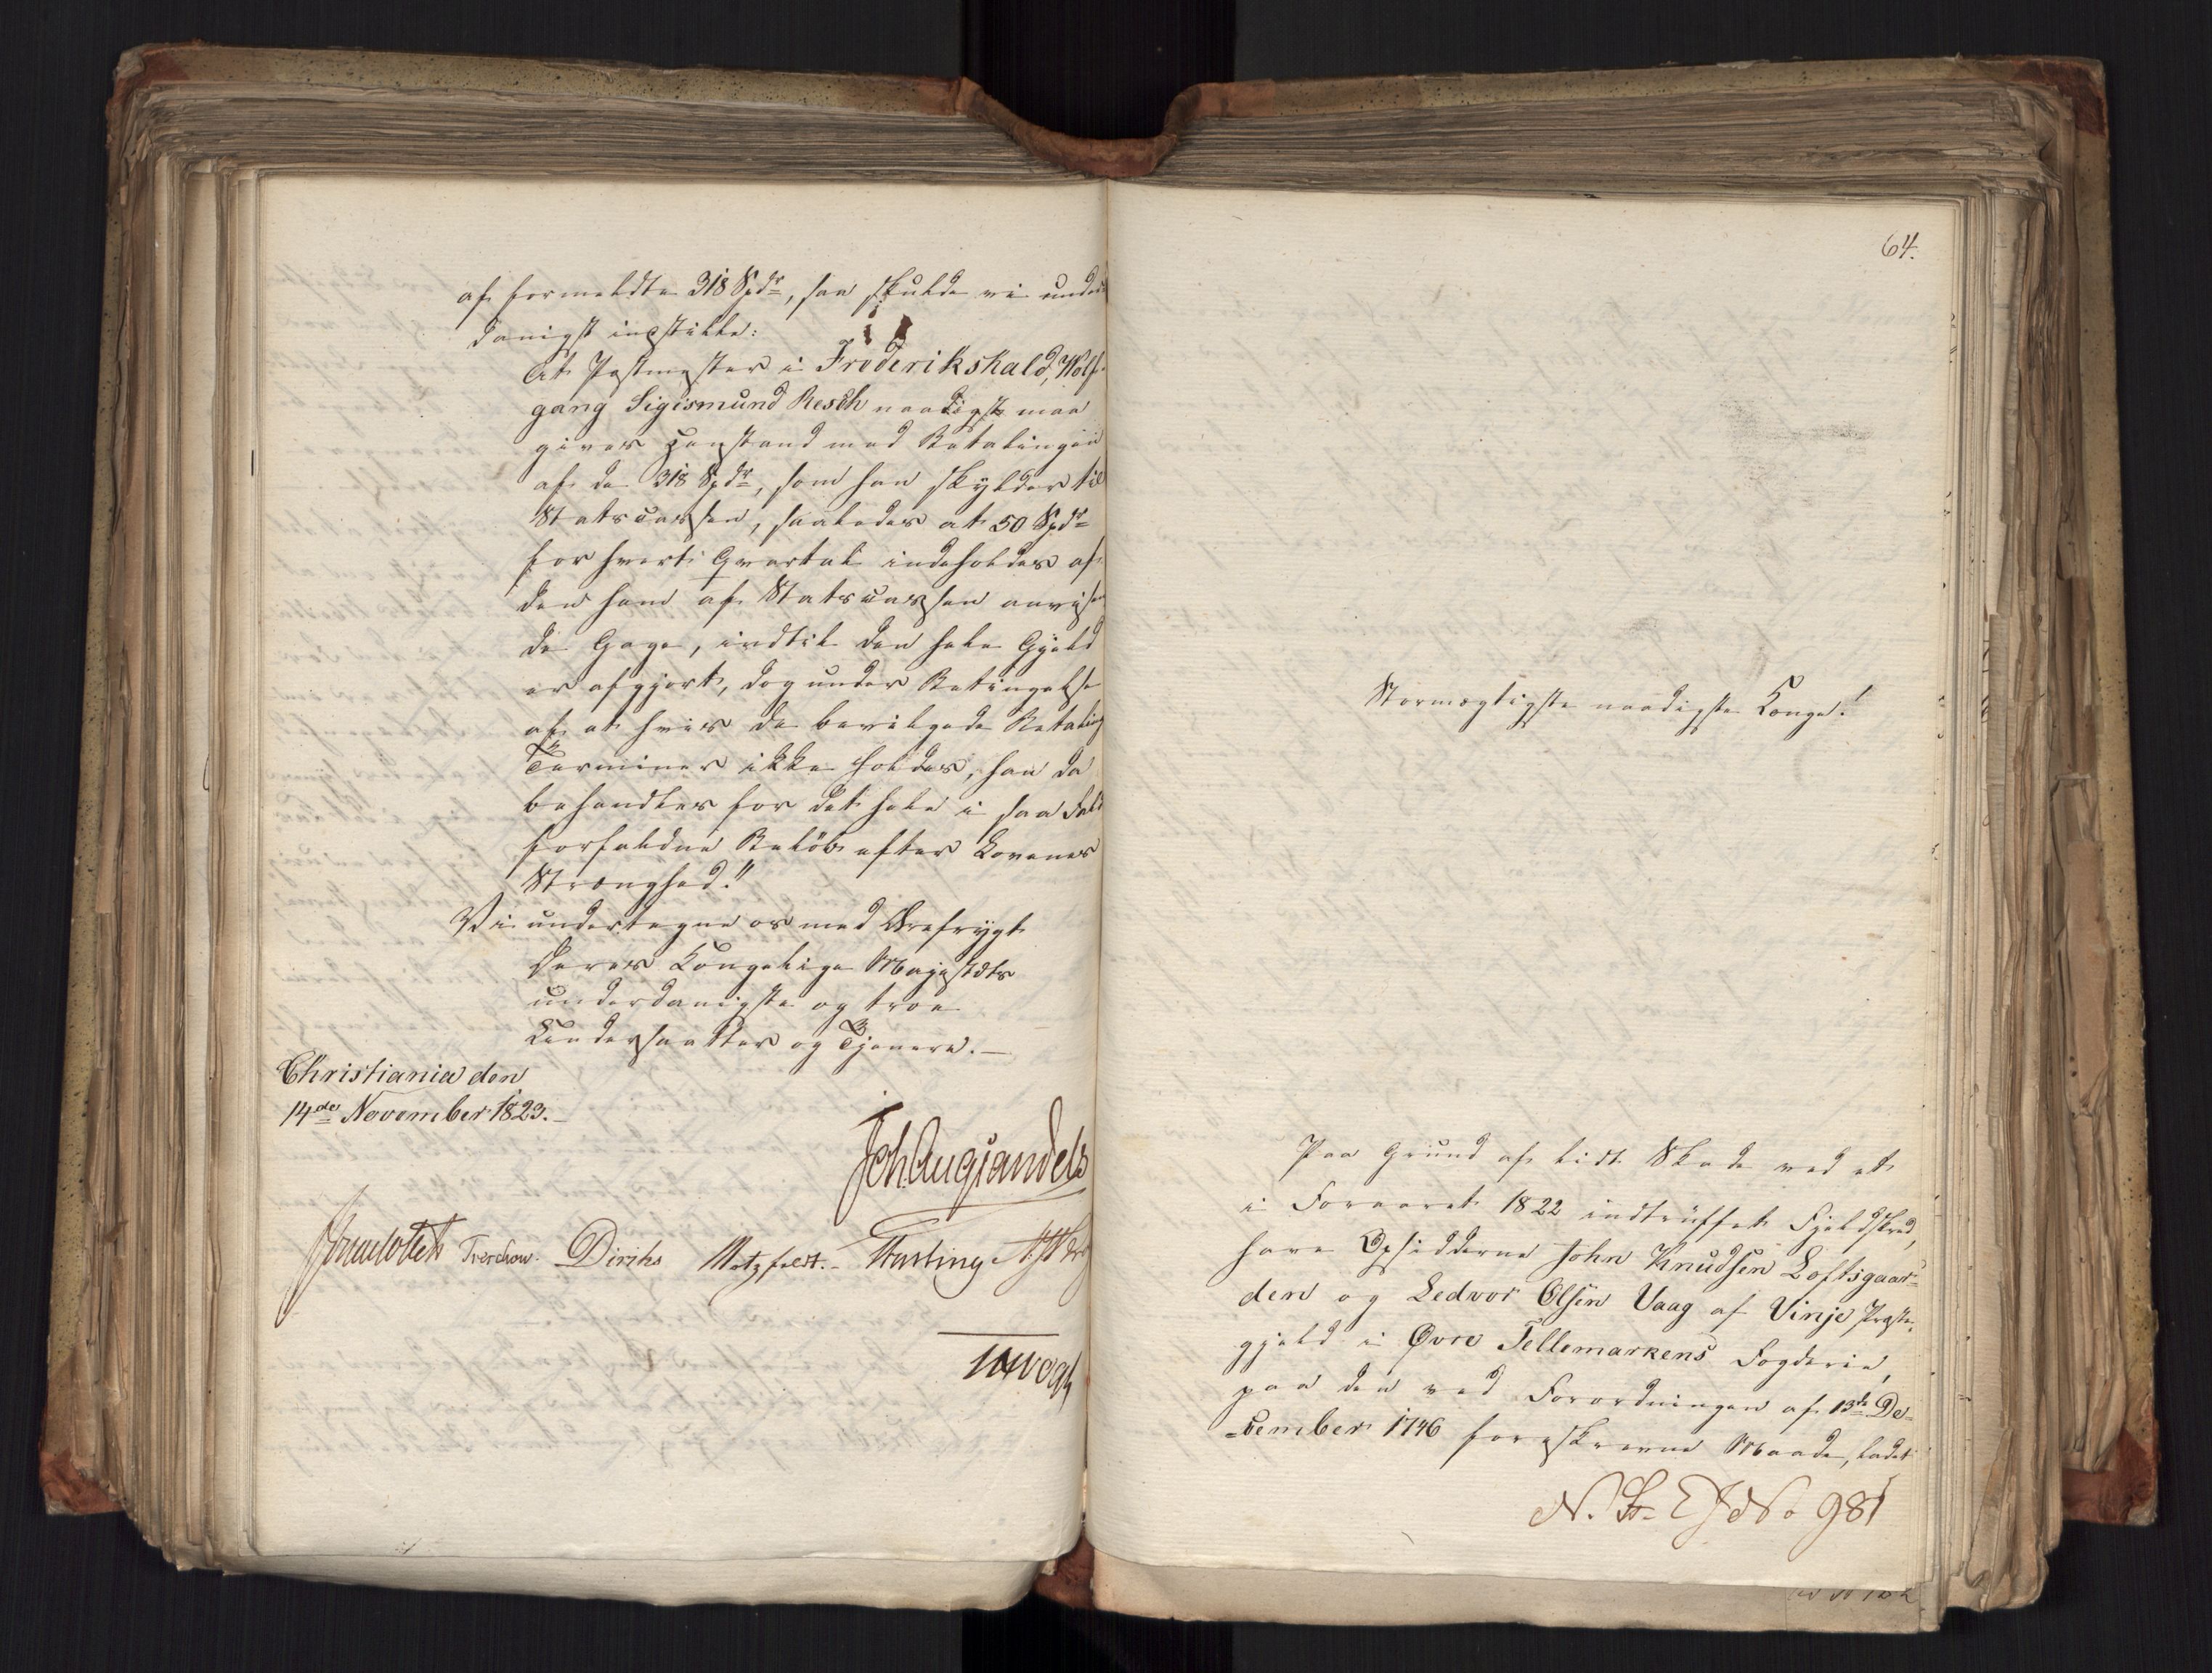 af formeldte 318 Spdr, saa skulde vi under-
danigst indstille:
At Postmester i Frederikshald, Wolf-
gang Sigismund Resch naadigst maa
gives Henstand med Betalingen
af de 318 Spdr, som han skylder til
Statscassen, saaledes at 50 Spdr
for hvert Qvartal indeholdes af
den ham af Statscassen anvisen-
de Gage, indtil den hele Gjæld
er afgjort, dog under Betingelse
af at hvis de bevilgede Betalings
Terminer ikke holdes, han da
behandles for det hele i saa Fald
forfaldne Beløb efter Lovenes
Strænghed."
Vi undertegne os med Ærefrygt
Deres Kongelige Majestæts
underdanigste og troe
Undersaatter og Tjenere.—
Christiania den
14de November 1823.—
Joh Aug Sandels
Sommerfeldt Treschow. Diriks Motzfeldt.- Fasting
JHVogt
64.
Stormægtigste naadigste Konge!
Paa Grund af lidt Skade ved et
i Foraaret 1822 indtruffet Fjeldskred,
have Opsidderne John Knudsen Loftsgaar-
den og Ledvor Olsen Vaag af Vinje Præste-
gjeld i Øvre Tellemarkens Fogderie,
paa den ved Forordningen af 13de De-
-cember 1746 foreskrevne Maade, ladet
No 981